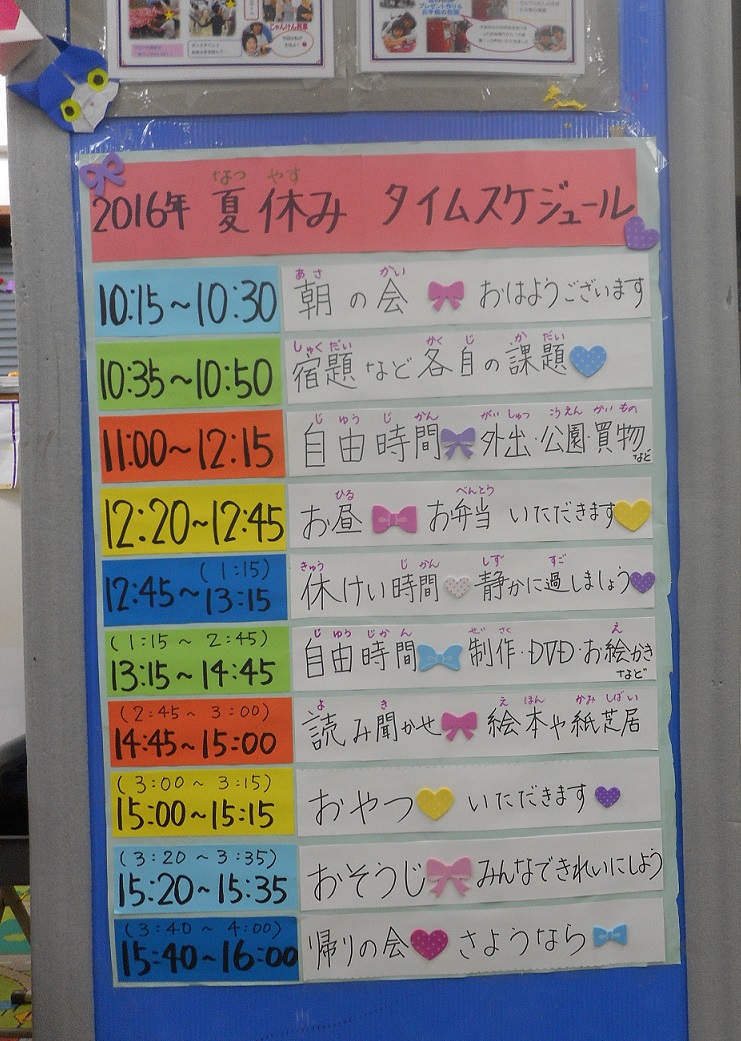 じゃんけん列車
2016年 夏休み タイムスケジュール
なつ やす
10:15~10:30 朝の会 おはようございます
あさ かい
10:35~10:50 宿題など各自の課題
しゅくだい かくじ かだい
11:00~12:15 自由時間 外出・公園・買物など
じゆうじかん がいしゅつ こうえん かいもの
12:20~12:45 お昼 お弁当 いただきます
ひる べんとう
(1:15)
12:45~13:15 休けい時間 静かに過しましょう
きゅう じかん しず すご
(1:15 ~ 2:45)
13:15~14:45 自由時間 制作・DVD・お絵かきなど
じゆうじかん せいさく え
(2:45 ~ 3:00)
14:45~15:00 読み聞かせ 絵本や紙芝居
よ き えほん かみしばい
(3:00 ~ 3:15)
15:00~15:15 おやつ いただきます
(3:20 ~ 3:35)
15:20~15:35 おそうじ みんなできれいにしよう
(3:40 ~ 4:00)
15:40~16:00 帰りの会 さようなら